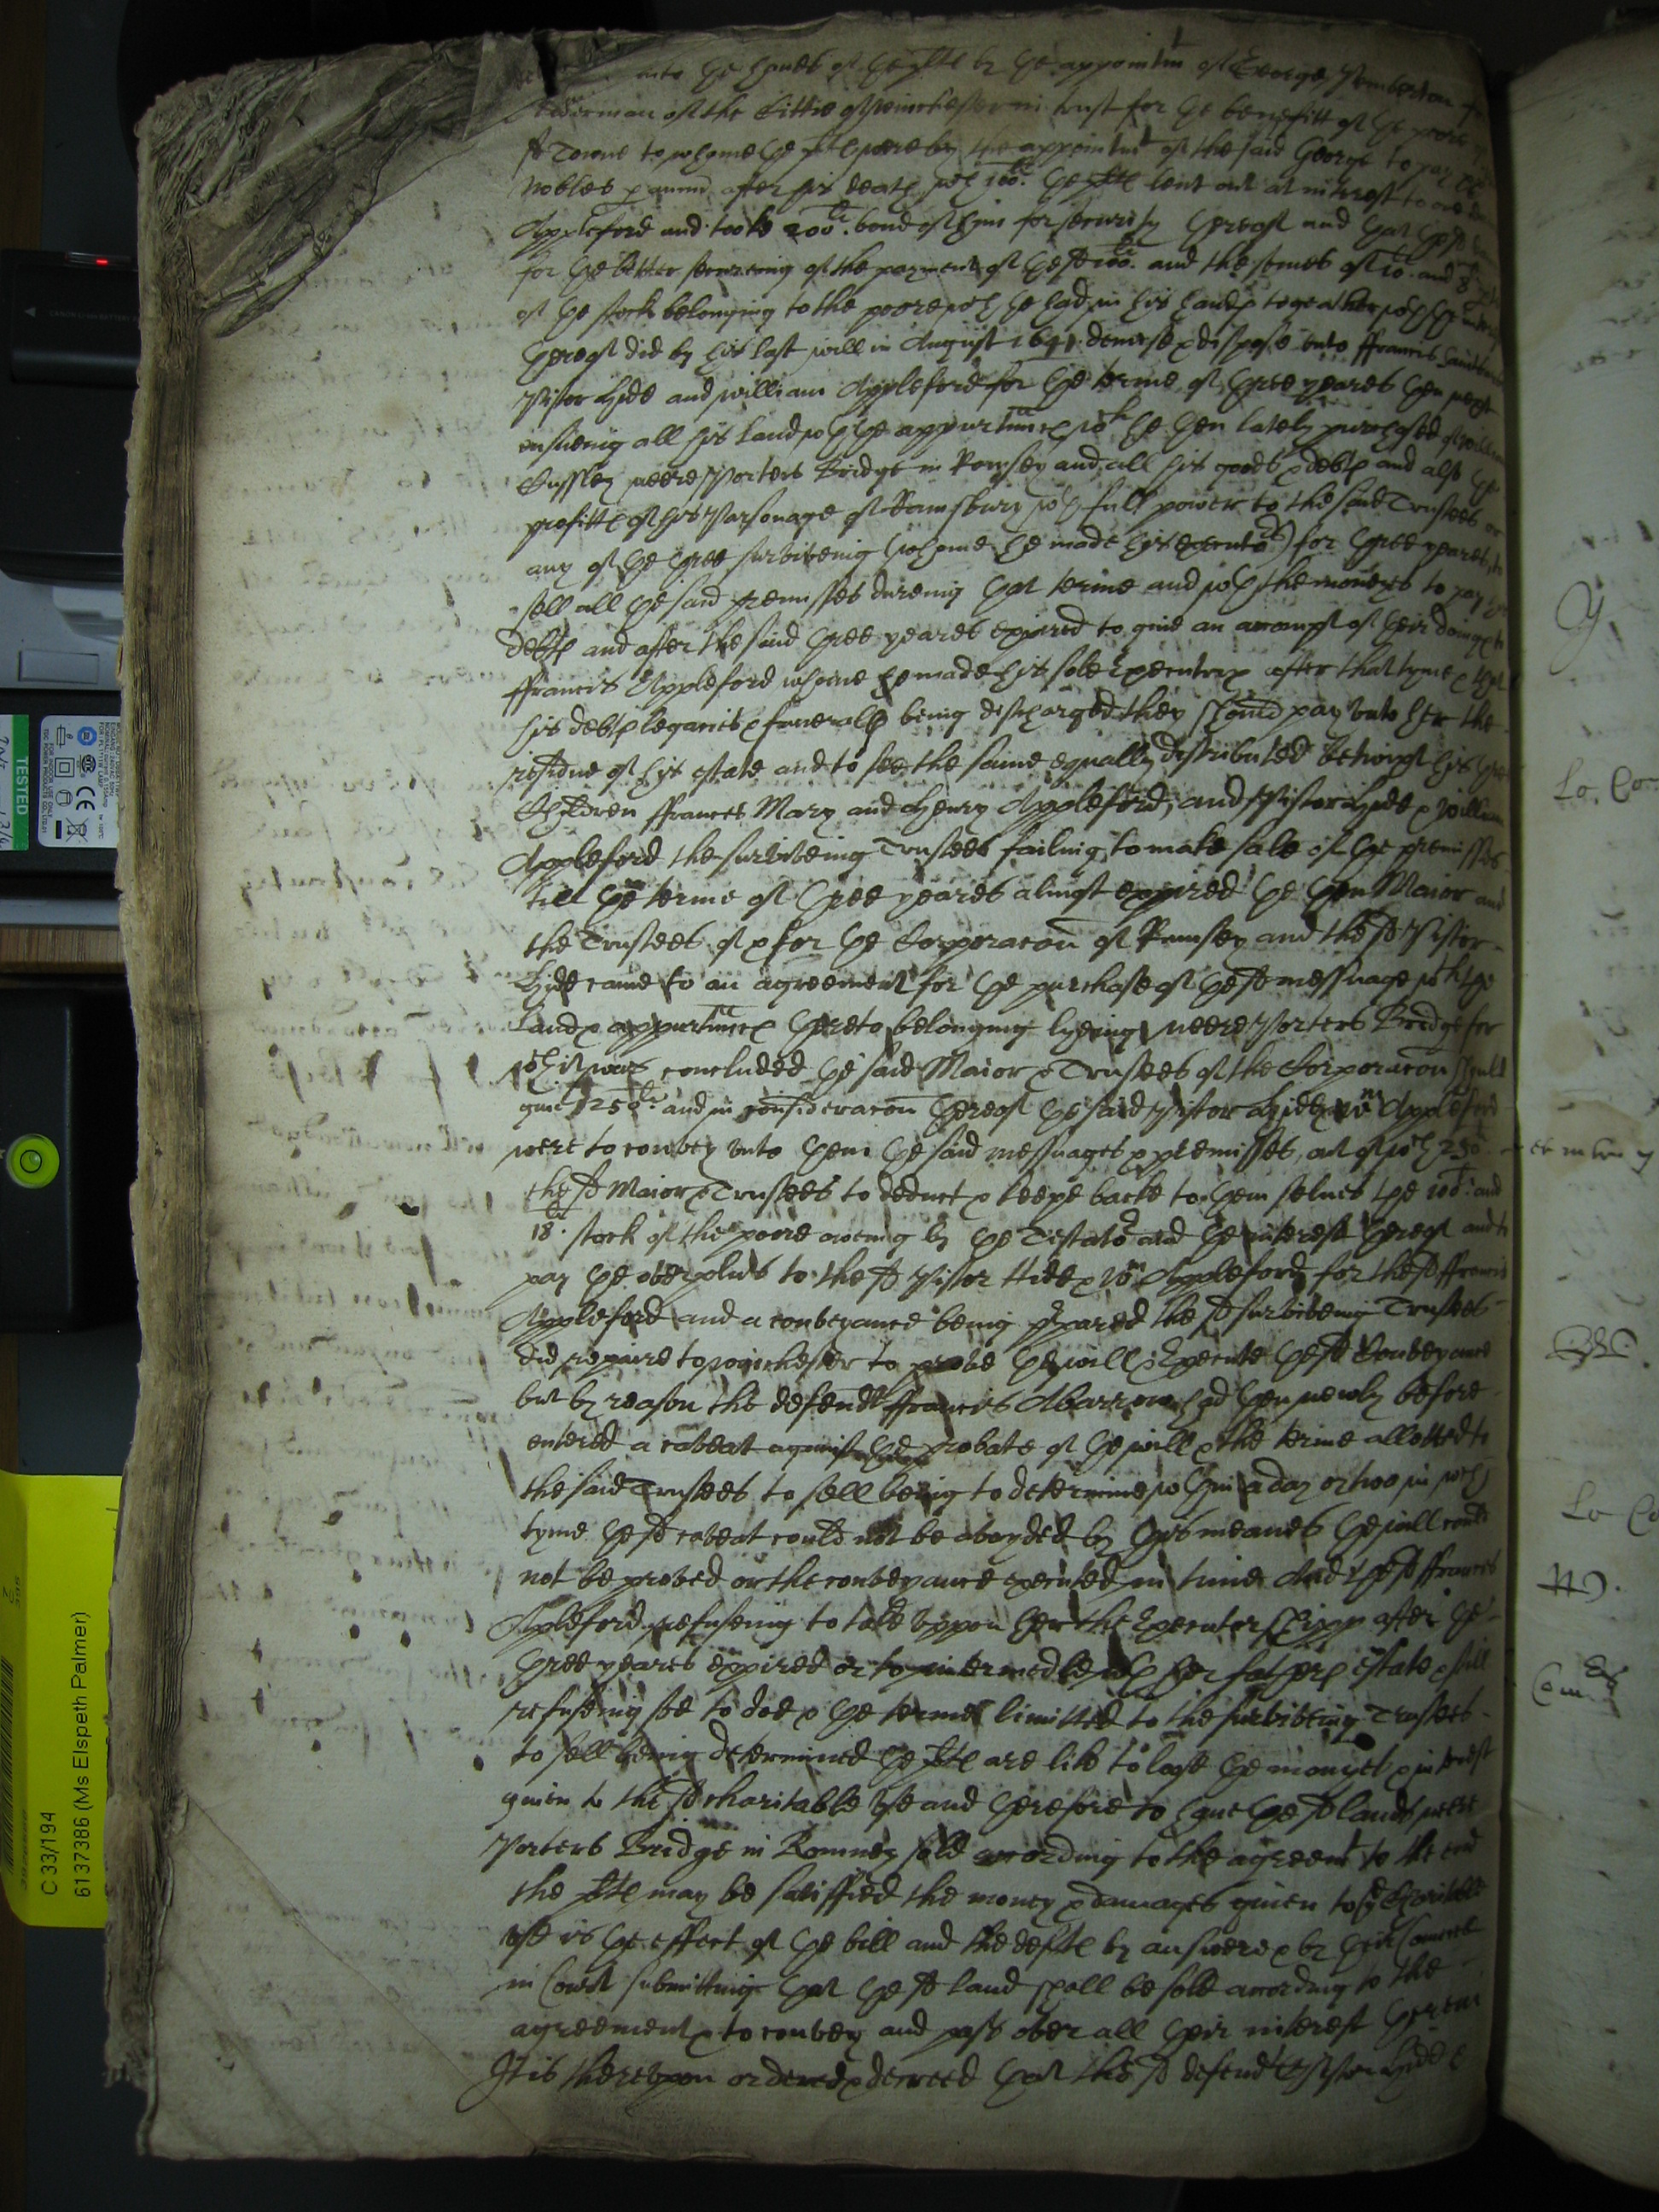 into the hands of the plts by the appointmt of George Pemberton
Alderman of the Cittie of winchester in trust for the benefitt of the poore
sd Towne to whome the plts were by the appointmt of the said George to pay
Nobles p annum after his death wch 100li. the plts lent out at interest to one
Appleford and tooke 200li. bond of him for security thereof and that the sd
for the better secureing of the payment of the sd 100li. and the sumes of 10li. and 8li
of the stock belonging to the poore wch he had in his hands togeather wth the interest
thereof did by his last will in August 1641 demise & dispose unto ffrancis
Pistor Hide and william Appleford for the terme of three yeares then next
ensueing all his land wth the appurtnncs wch he then lately purchased of william
neere Porters Bridge in Romsey and all his goods & debts and also the
profitts of his Parsonage of Ramsbury wth full power to the said Trustees or
any of the three surviveing (whome he made his executors) for three yeares to
sell all the said premisses dureing that terme and wth the moneyes to pay his
debts and after the said three yeares expired to give an accompt of their doings to
ffrancis Appleford whome he made his sole Executrix after that tyme & that
his debts legacies & funeralls being discharged they should pay unto her the
residue of his estate and to see the same equally distributed betwixt his three
Children ffrances Mary and Henry Appleford, and Pistor Hide & William
Appleford the surviveing Trustees failing to make sale of the premisses
till the terme of three yeares almost expired the then Maior and
the Trustees of & for the Corporacon of Rumsey and the sd Pistor
Hide came to an agreement for the purchase of the sd messuage wth the
Lands appurtnncs thereto belonging lyeing neere Porters Bridge for
wch it was concluded the said Maior & Trustees of the Corporacon should
give 250li. and in consideracon thereof the said Pistor Hide & Wm Appleford
were to convey unto them the said messuages & premisses, out of wch 250li
the sd Maior & Trustees to deduct & keepe backe to them selues the 100li. and
18li. stock of the poore oweing by the Testator and the interest thereof and to
pay the overplus to the sd Pistor Hide & Wm Appleford for the sd ffrancis
Appleford and a conveyance being ppared the sd surviveing Trustees
did repaire to winchester to prove the will & Execute the sd Conveyance
but by reason the defendt ffrancis Abarrow had then newly before
entered a caveat against the probate of the will & the terme allotted to
the said Trustees to sell being to determine wthin a day or two in wch
tyme the sd caveat could not be avoyded by this meanes the will could
not be proved or the conveyance executed in time And the sd ffrances
Apleford refuseing to take uppon her the Executorshipp after the
three yeares expired or to intermedle wth her fathers estate & still
refuseing soe to doe & the terme limitted to the surviveing Trustees
to sell being determined the plts are like to lose the moneyes & interest
given to the sd charitable use and therefore to have the sd lands neere
Porters Bridge in Romney sold according to the agreemt to the end
the plts may be satisffied the money & damages given to the charitable
use is the effect of the bill and the defts by answere & by their Councel
in Court submitting that the sd land shall be sold according to the
agreement & to convey and pass over all their interest therein
It is thereupon ordered & decreed that the sd defendt Pistor Hide
Lo. Co
Lo Co
Com
TESTED
C 33/194
6137386 (Ms Elspeth Palmer)